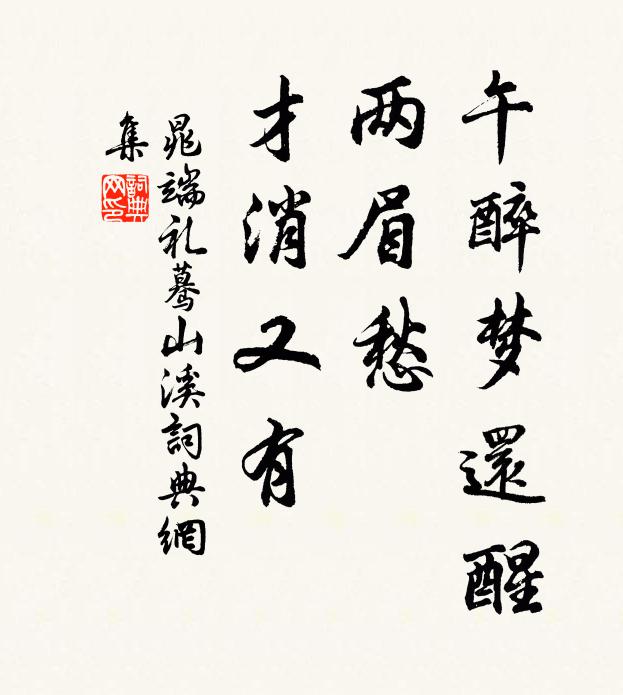 午醉梦還醒
两眉愁
才消又有
晁端礼蓦山溪詞典網
集
詞典網印